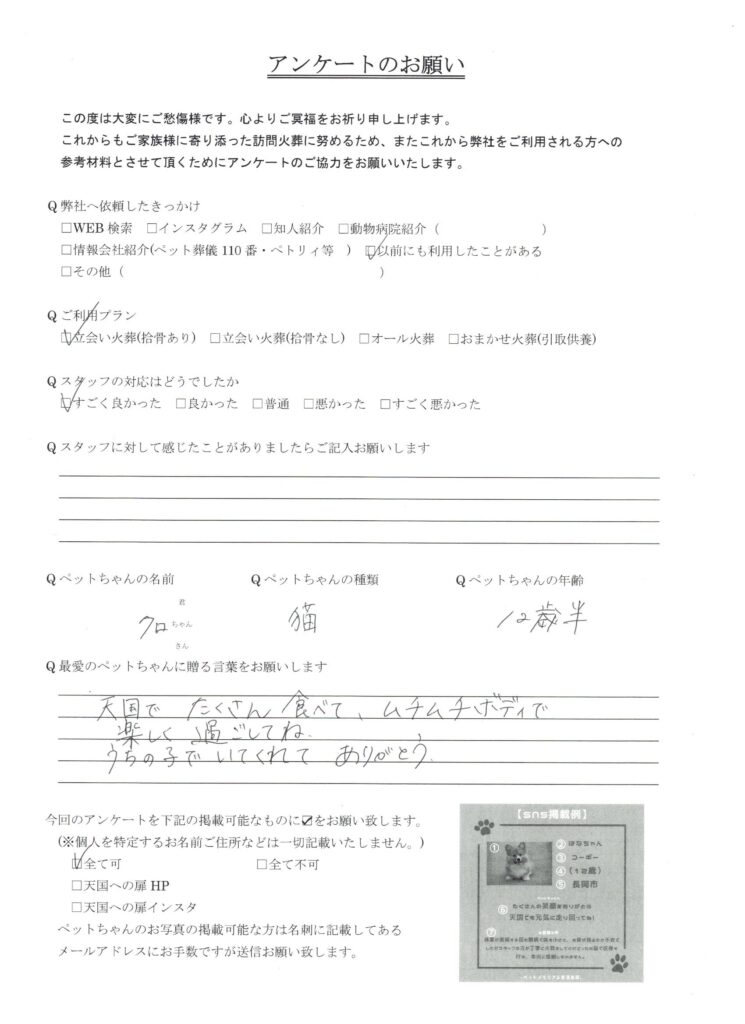 アンケートのお願い
この度は大変にご愁傷様です。心よりご冥福をお祈り申し上げます。
これからもご家族様に寄り添った訪問火葬に努めるため、またこれから弊社をご利用される方への
参考材料とさせて頂くためにアンケートのご協力をお願いいたします。
Q 弊社へ依頼したきっかけ
□WEB 検索 □インスタグラム □知人紹介 □動物病院紹介（ ）
□情報会社紹介(ペット葬儀 110 番・ペトリィ等 ） ☑以前にも利用したことがある
□その他（ ）
Q ご利用プラン
☑立会い火葬(拾骨あり) □立会い火葬(拾骨なし) □オール火葬 □おまかせ火葬(引取供養)
Q スタッフの対応はどうでしたか
☑すごく良かった □良かった □普通 □悪かった □すごく悪かった
Q スタッフに対して感じたことがありましたらご記入お願いします
Q ペットちゃんの名前 Q ペットちゃんの種類 Q ペットちゃんの年齢
君
クロ ちゃん 猫 12歳半
さん
Q 最愛のペットちゃんに贈る言葉をお願いします
天国で たくさん 食べて、ムチムチボディで
楽しく 過ごしてね.
うちの子で いてくれて ありがとう
今回のアンケートを下記の掲載可能なものに☑をお願い致します。
(※個人を特定するお名前ご住所などは一切記載いたしません。)
☑全て可 □全て不可
□天国への扉 HP
□天国への扉インスタ
ペットちゃんのお写真の掲載可能な方は名刺に記載してある
メールアドレスにお手数ですが送信お願い致します。
【sns掲載例】
① ② はなちゃん
③ コーギー
④ (12歳)
⑤ 長岡市
⑥ たくさんの笑顔をありがとう
天国でも元気に走り回ってね！
⑦